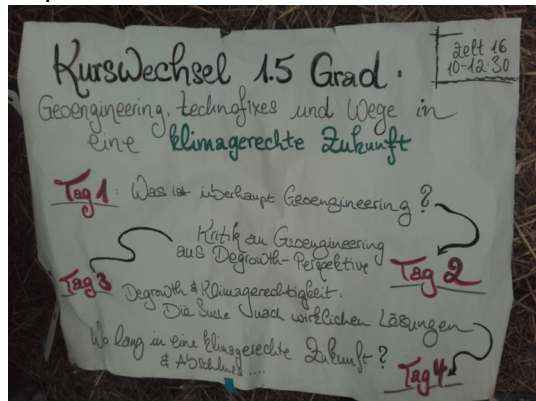 Kurswechsel 1.5 Grad.
Zelt 16
10-12:30
Geoengineering, technofixes und Wege in
eine klimagerechte Zukunft
Tag 1: Was ist überhaupt Geoengineering?
Kritik an Geoengineering
aus Degrowth-Perspektive
Tag 2
Tag 3
Degrowth & Klimagerechtigkeit:
Die Suche nach wirklichen Lösungen
Wo lang in eine klimagerechte Zukunft?
& Abschluss....
Tag 4